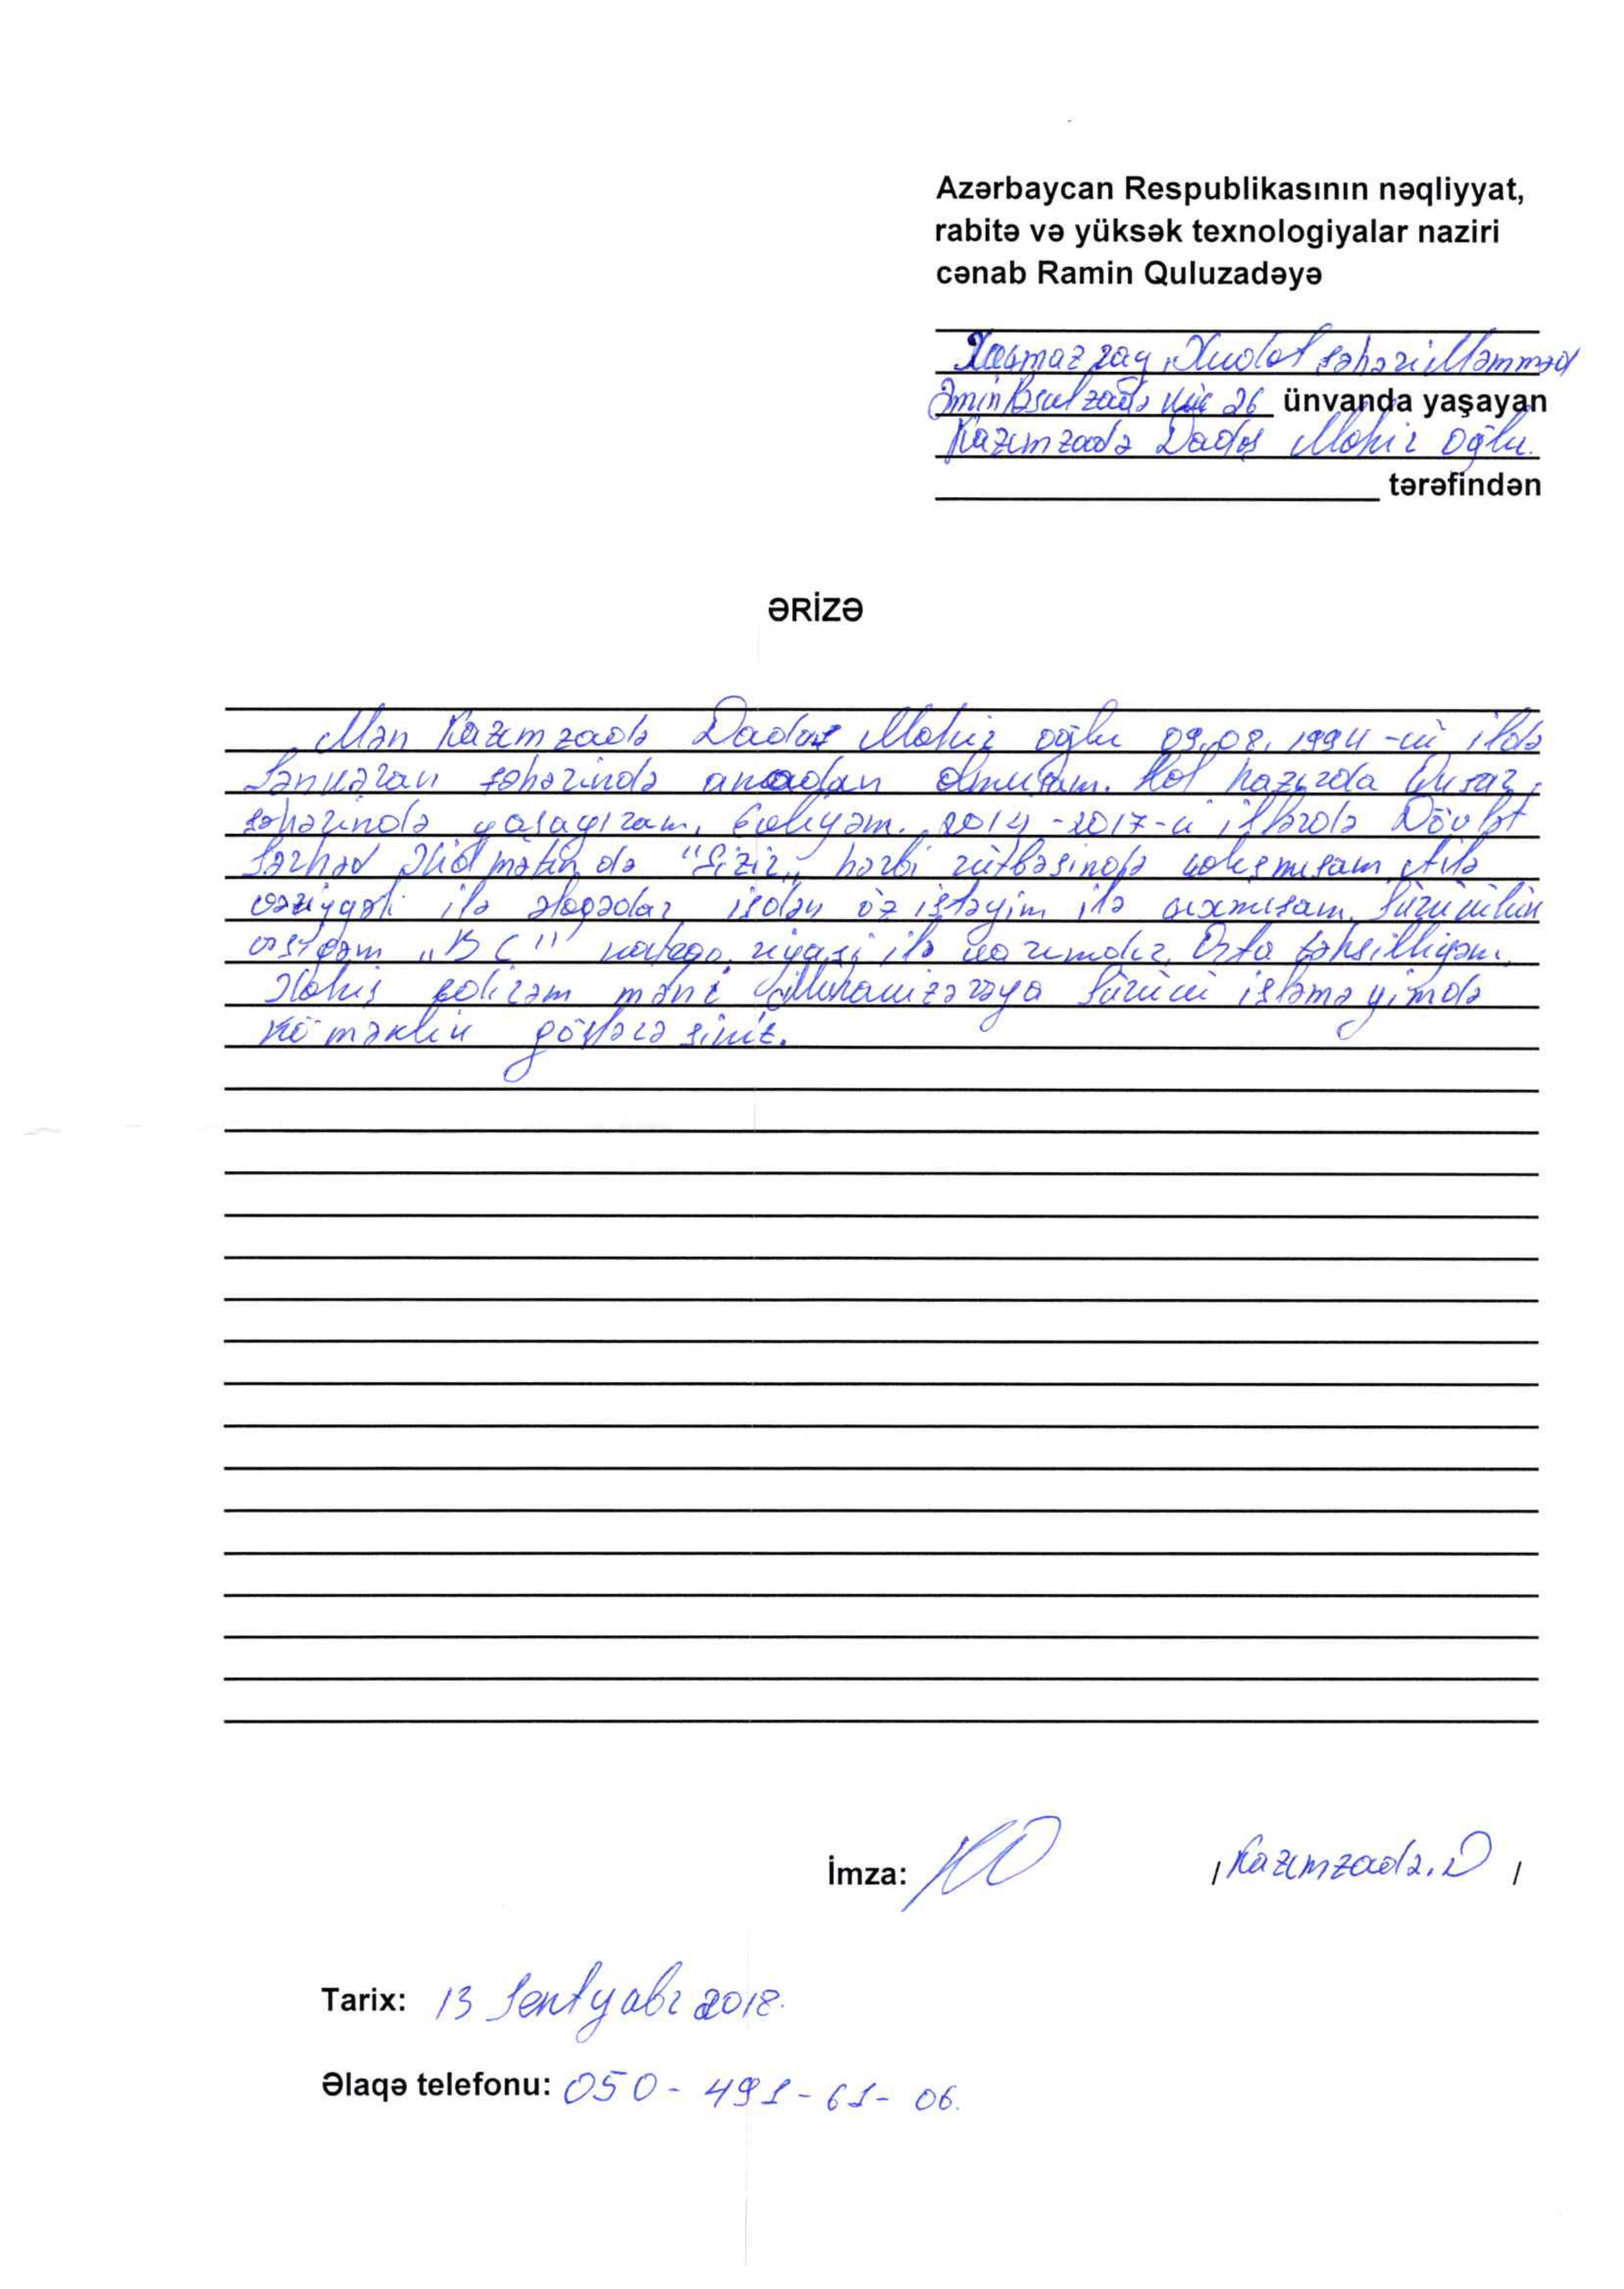 Azərbaycan Respublikasının nəqliyyat,
rabitə və yüksək texnologiyalar naziri
cənab Ramin Quluzadəyə
Xaçmaz ray, Xudat şəhəri Məmməd
Əmin Rsulzadə küç 26 ünvanda yaşayan
Kazımzadə Dadaş Mahir oğlu.
tərəfindən
ƏRİZƏ
Mən Kazımzadə Dadaş Mahir oğlu 09.08.1994-cü ildə
Lənkəran şəhərində anadan olmuşam. Hal hazırda Qusar
şəhərində yaşayıram. Evliyəm. 2014-2017-ci illərdə Dövlət
Sərhəd Xidmətində "Gizir" hərbi rütbəsində çalışmışam. Ailə
vəziyyəti ilə əlaqədar işdən öz istəyim ilə çıxmışam. Sürücülük
vəsiqəm "BC" kateqoriyası ilə Orta təhsilliyəm.
Xahiş edirəm məni sürücü işləməyimdə
köməklik göstərəsiniz.
İmza: / Kazımzadə.D /
Tarix: 13 Sentyabr 2018.
Əlaqə telefonu: 050-491-61-06.